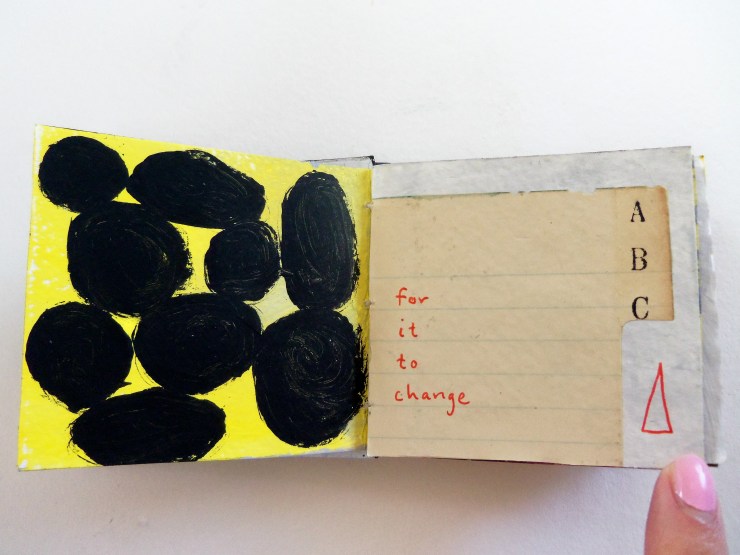 A
B
C
for
it
to
change